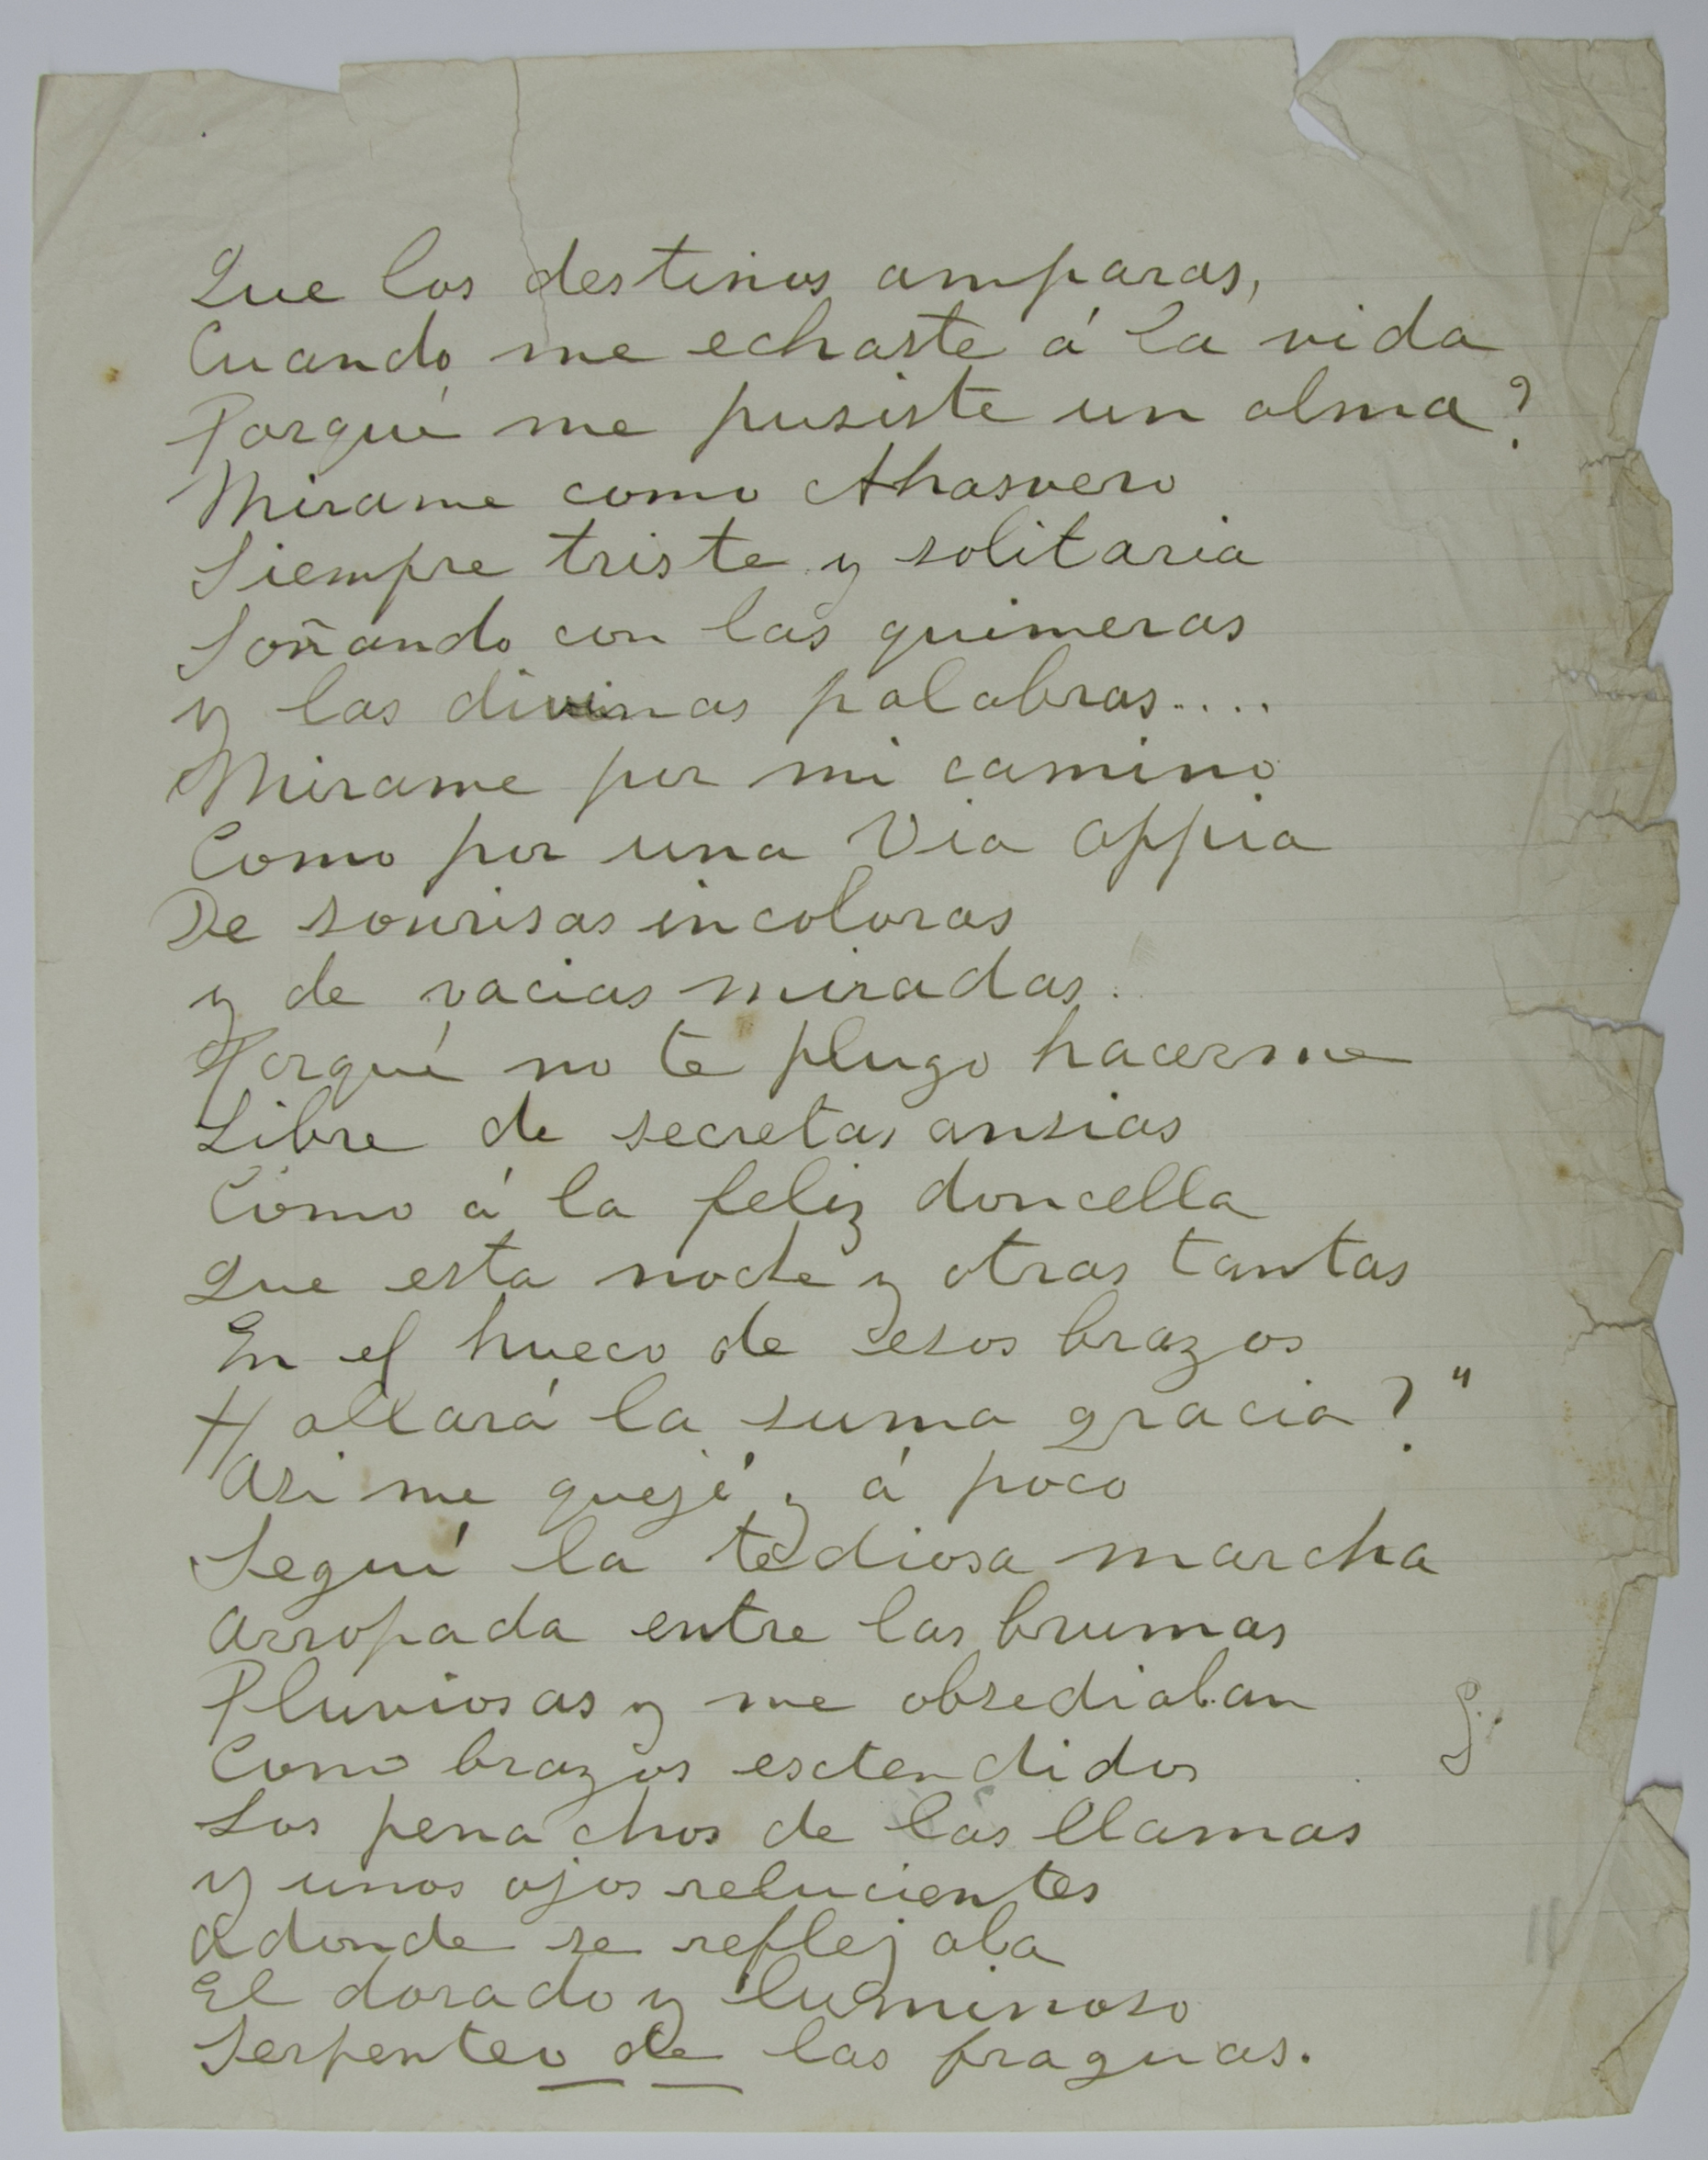 Que los destinos amparas,
Cuando me echaste á la vida
Porqué me pusiste un alma?
Mirame como Ahasvero
Siempre triste y solitaria
Soñando con las quimeras
y las divinas palabras....
Mirame por mi camino
Como por una Via Appia
De sourisas incoloras
y de vacias miradas.
Porqué no te plugo hacerme
Libre de secretas ansias
Como á la feliz doncella
Que esta noche y otras tantas
En el hueco de esos brazos
Hallará la suma gracia?"
Asi me quejé y á poco
Seguí la tediosa marcha
Arropada entre las brumas
Pluviosas y me obsediaban
Como brazos extendidos
Los penachos de las llamas
y unos ojos relucientes
Adonde se reflejaba
El dorado y luminoso
Serpenteo de las fraguas.